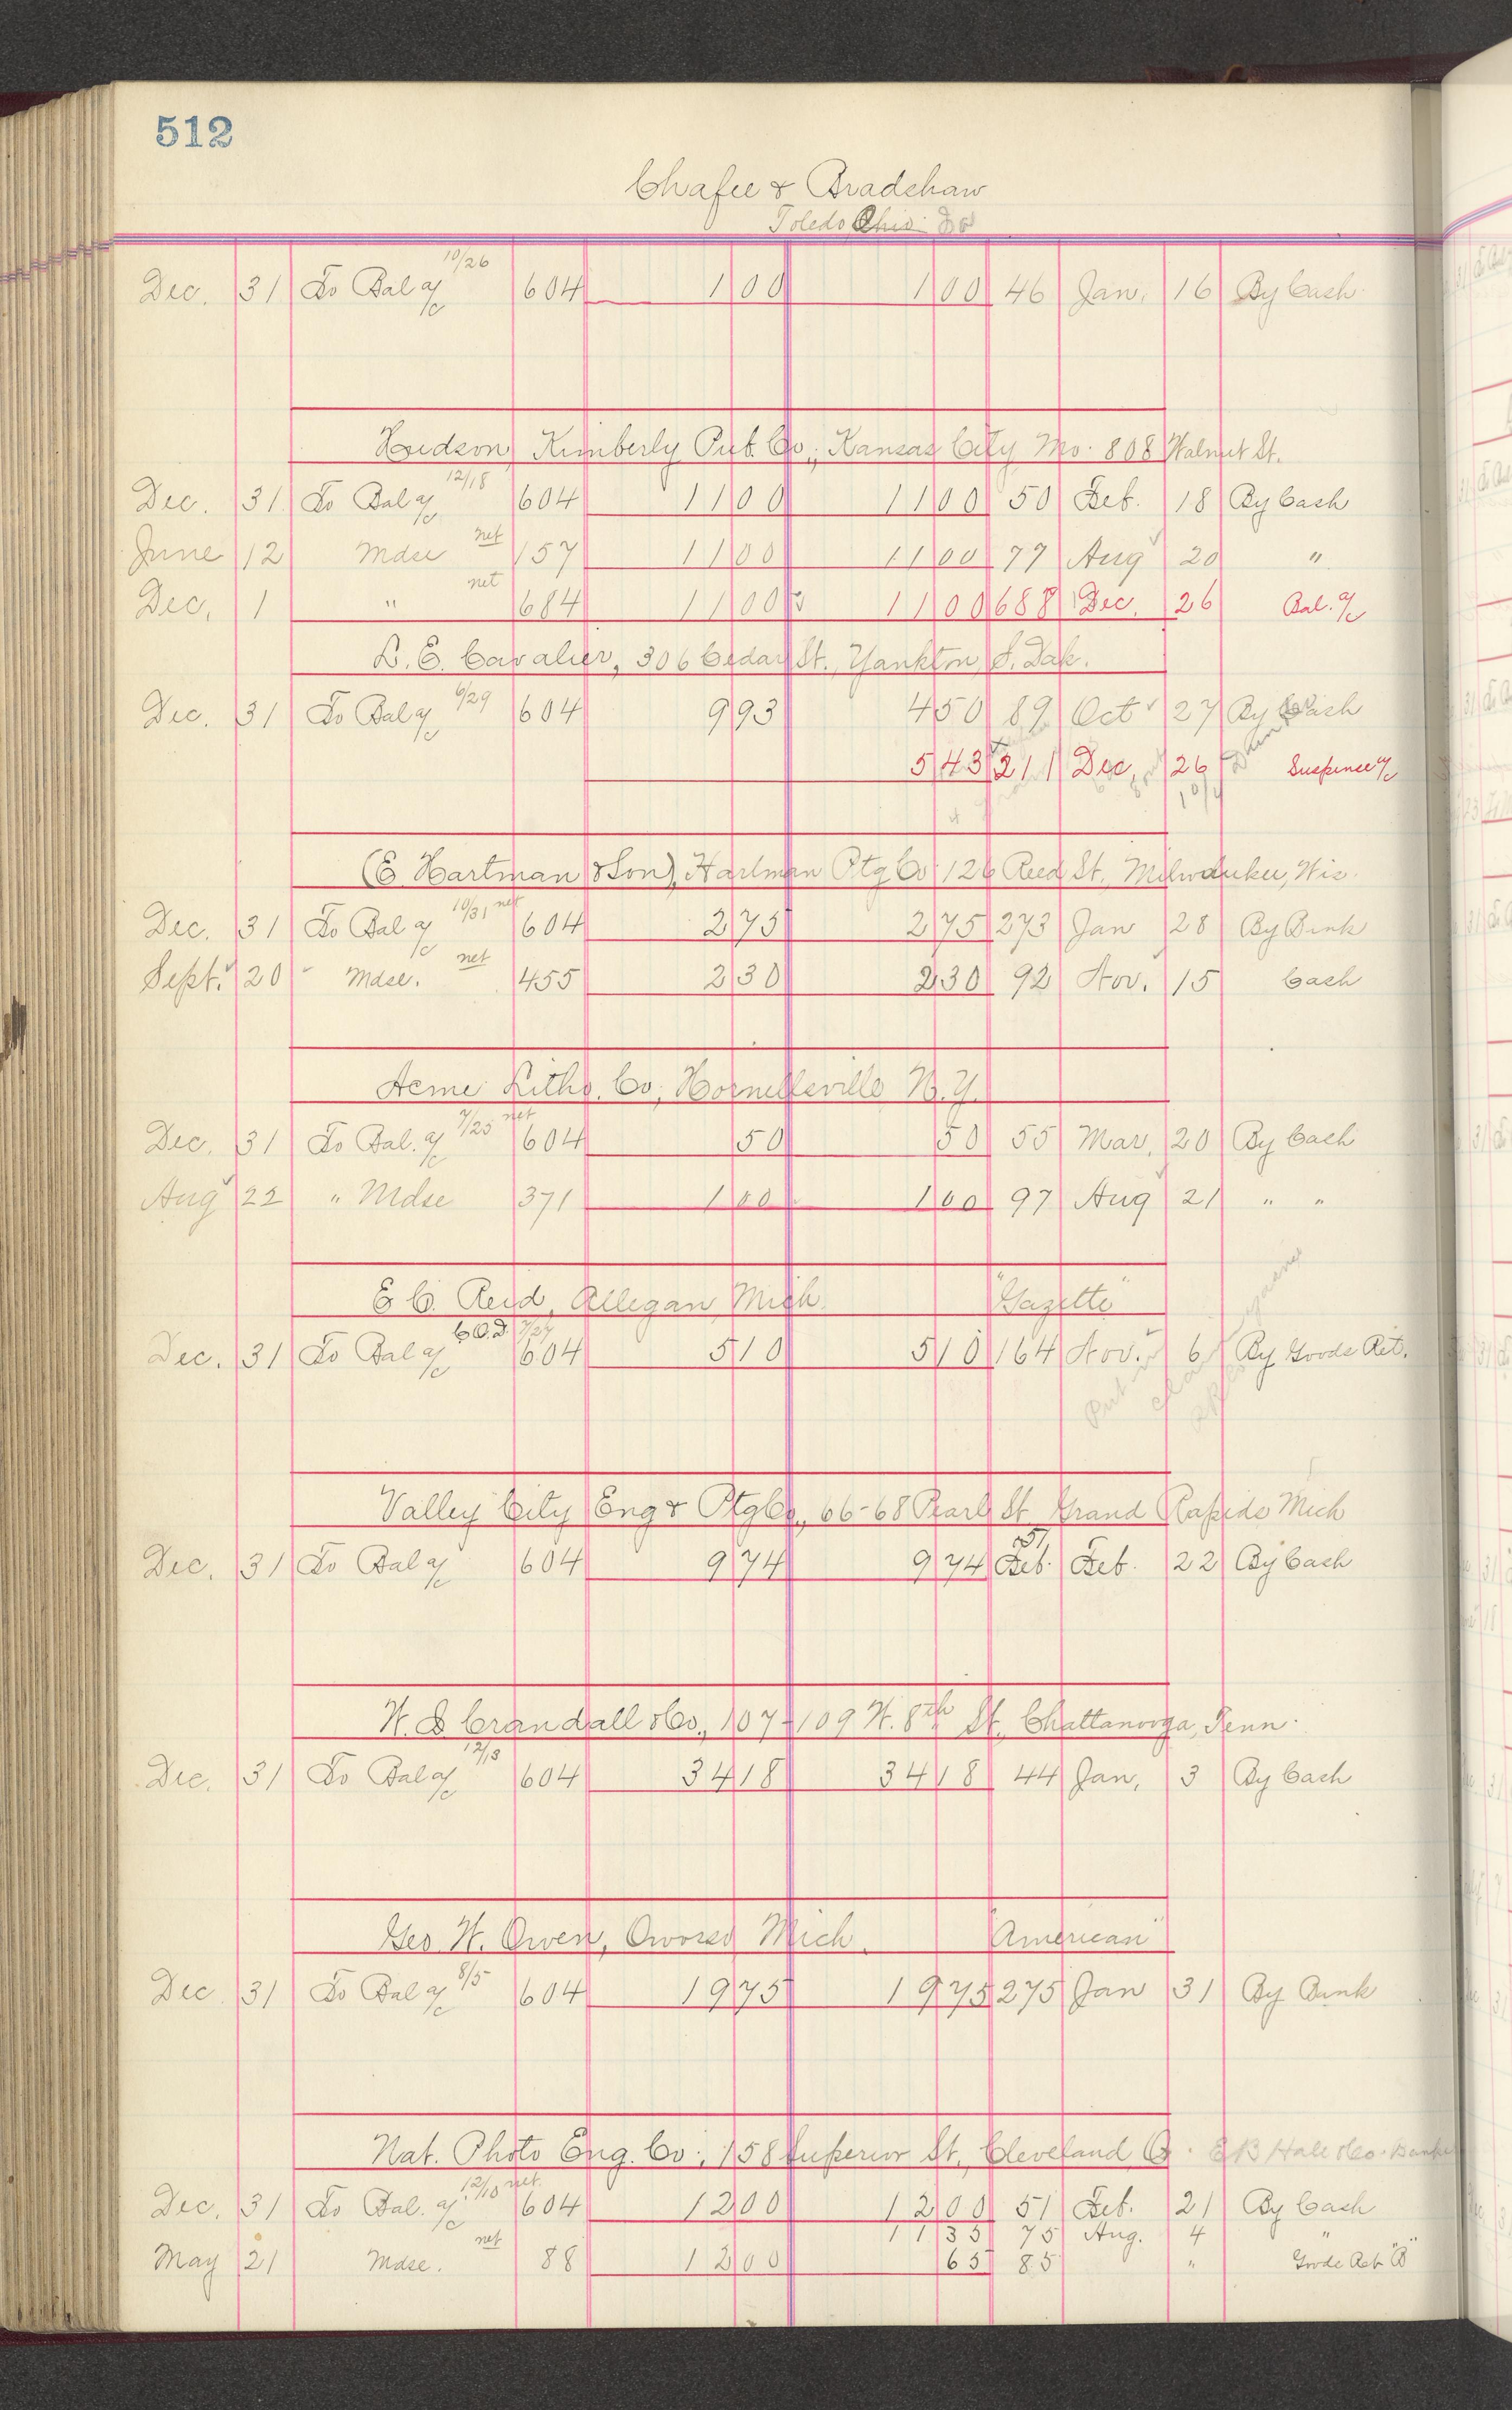 512
Chafee & Bradshaw
Toledo Ohio
Dec. 31 To Bal a/c 10/26 604 1 00 1 00 46 Jan. 16 By Cash
Hudson, Kimberly Pub. Co., Kansas City Mo. 808 Walnut St.
Dec. 31 To Bal a/c 12/18 604 11 00 11 00 50 Feb. 18 By Cash
June 12 Mdse net 157 11 00 11 00 77 Aug 20 "
Dec. 1 " net 684 11 00 11 00 688 Dec. 26 Bal. a/c
L. E. Cavalier, 306 Cedar St., Yankton, S. Dak.
Dec. 31 To Bal a/c 6/29 604 9 93 4 50 89 Oct 27 By Cash
5 43 211 Dec. 26 Suspense a/c
(E. Hartman & Son), Hartman Ptg Co 126 Reed St., Milwaukee, Wis.
Dec. 31 To Bal a/c 10/31 net 604 2 75 2 75 273 Jan 28 By Bank
Sept. 20 " Mdse. net 455 2 30 2 30 92 Nov. 15 Cash
Acme Litho. Co., Hornellsville N.Y.
Dec. 31 To Bal. a/c 7/25 net 604 50 50 55 Mar. 20 By Cash
Aug 22 " Mdse 371 1 00 1 00 97 Aug 21 " "
E C. Reid, Allegan, Mich. "Gazette"
Dec. 31 To Bal a/c C.O.D. 7/27 604 5 10 5 10 164 Nov. 6 By Goods Ret.
Valley City Eng & Ptg Co., 66-68 Pearl St Grand Rapids Mich
51
Dec. 31 To Bal a/c 604 9 74 9 74 Feb. Feb. 22 By Cash
W. I. Crandall & Co., 107-109 W. 8th St. Chattanooga, Tenn.
Dec. 31 To Bal a/c 12/13 604 34 18 34 18 44 Jan. 3 By Cash
Geo. W. Owen, Owosso Mich. "American"
Dec 31 To Bal a/c 8/5 604 19 75 19 75 275 Jan 31 By Bank
Nat. Photo Eng. Co., 158 Superior St., Cleveland O. E B Hale & Co. Bank
Dec. 31 To Bal. a/c 12/10 net 604 12 00 12 00 51 Feb. 21 By Cash
11 35 75 Aug. 4 "
May 21 Mdse. net 88 12 00 65 85 " Goods Ret "B"